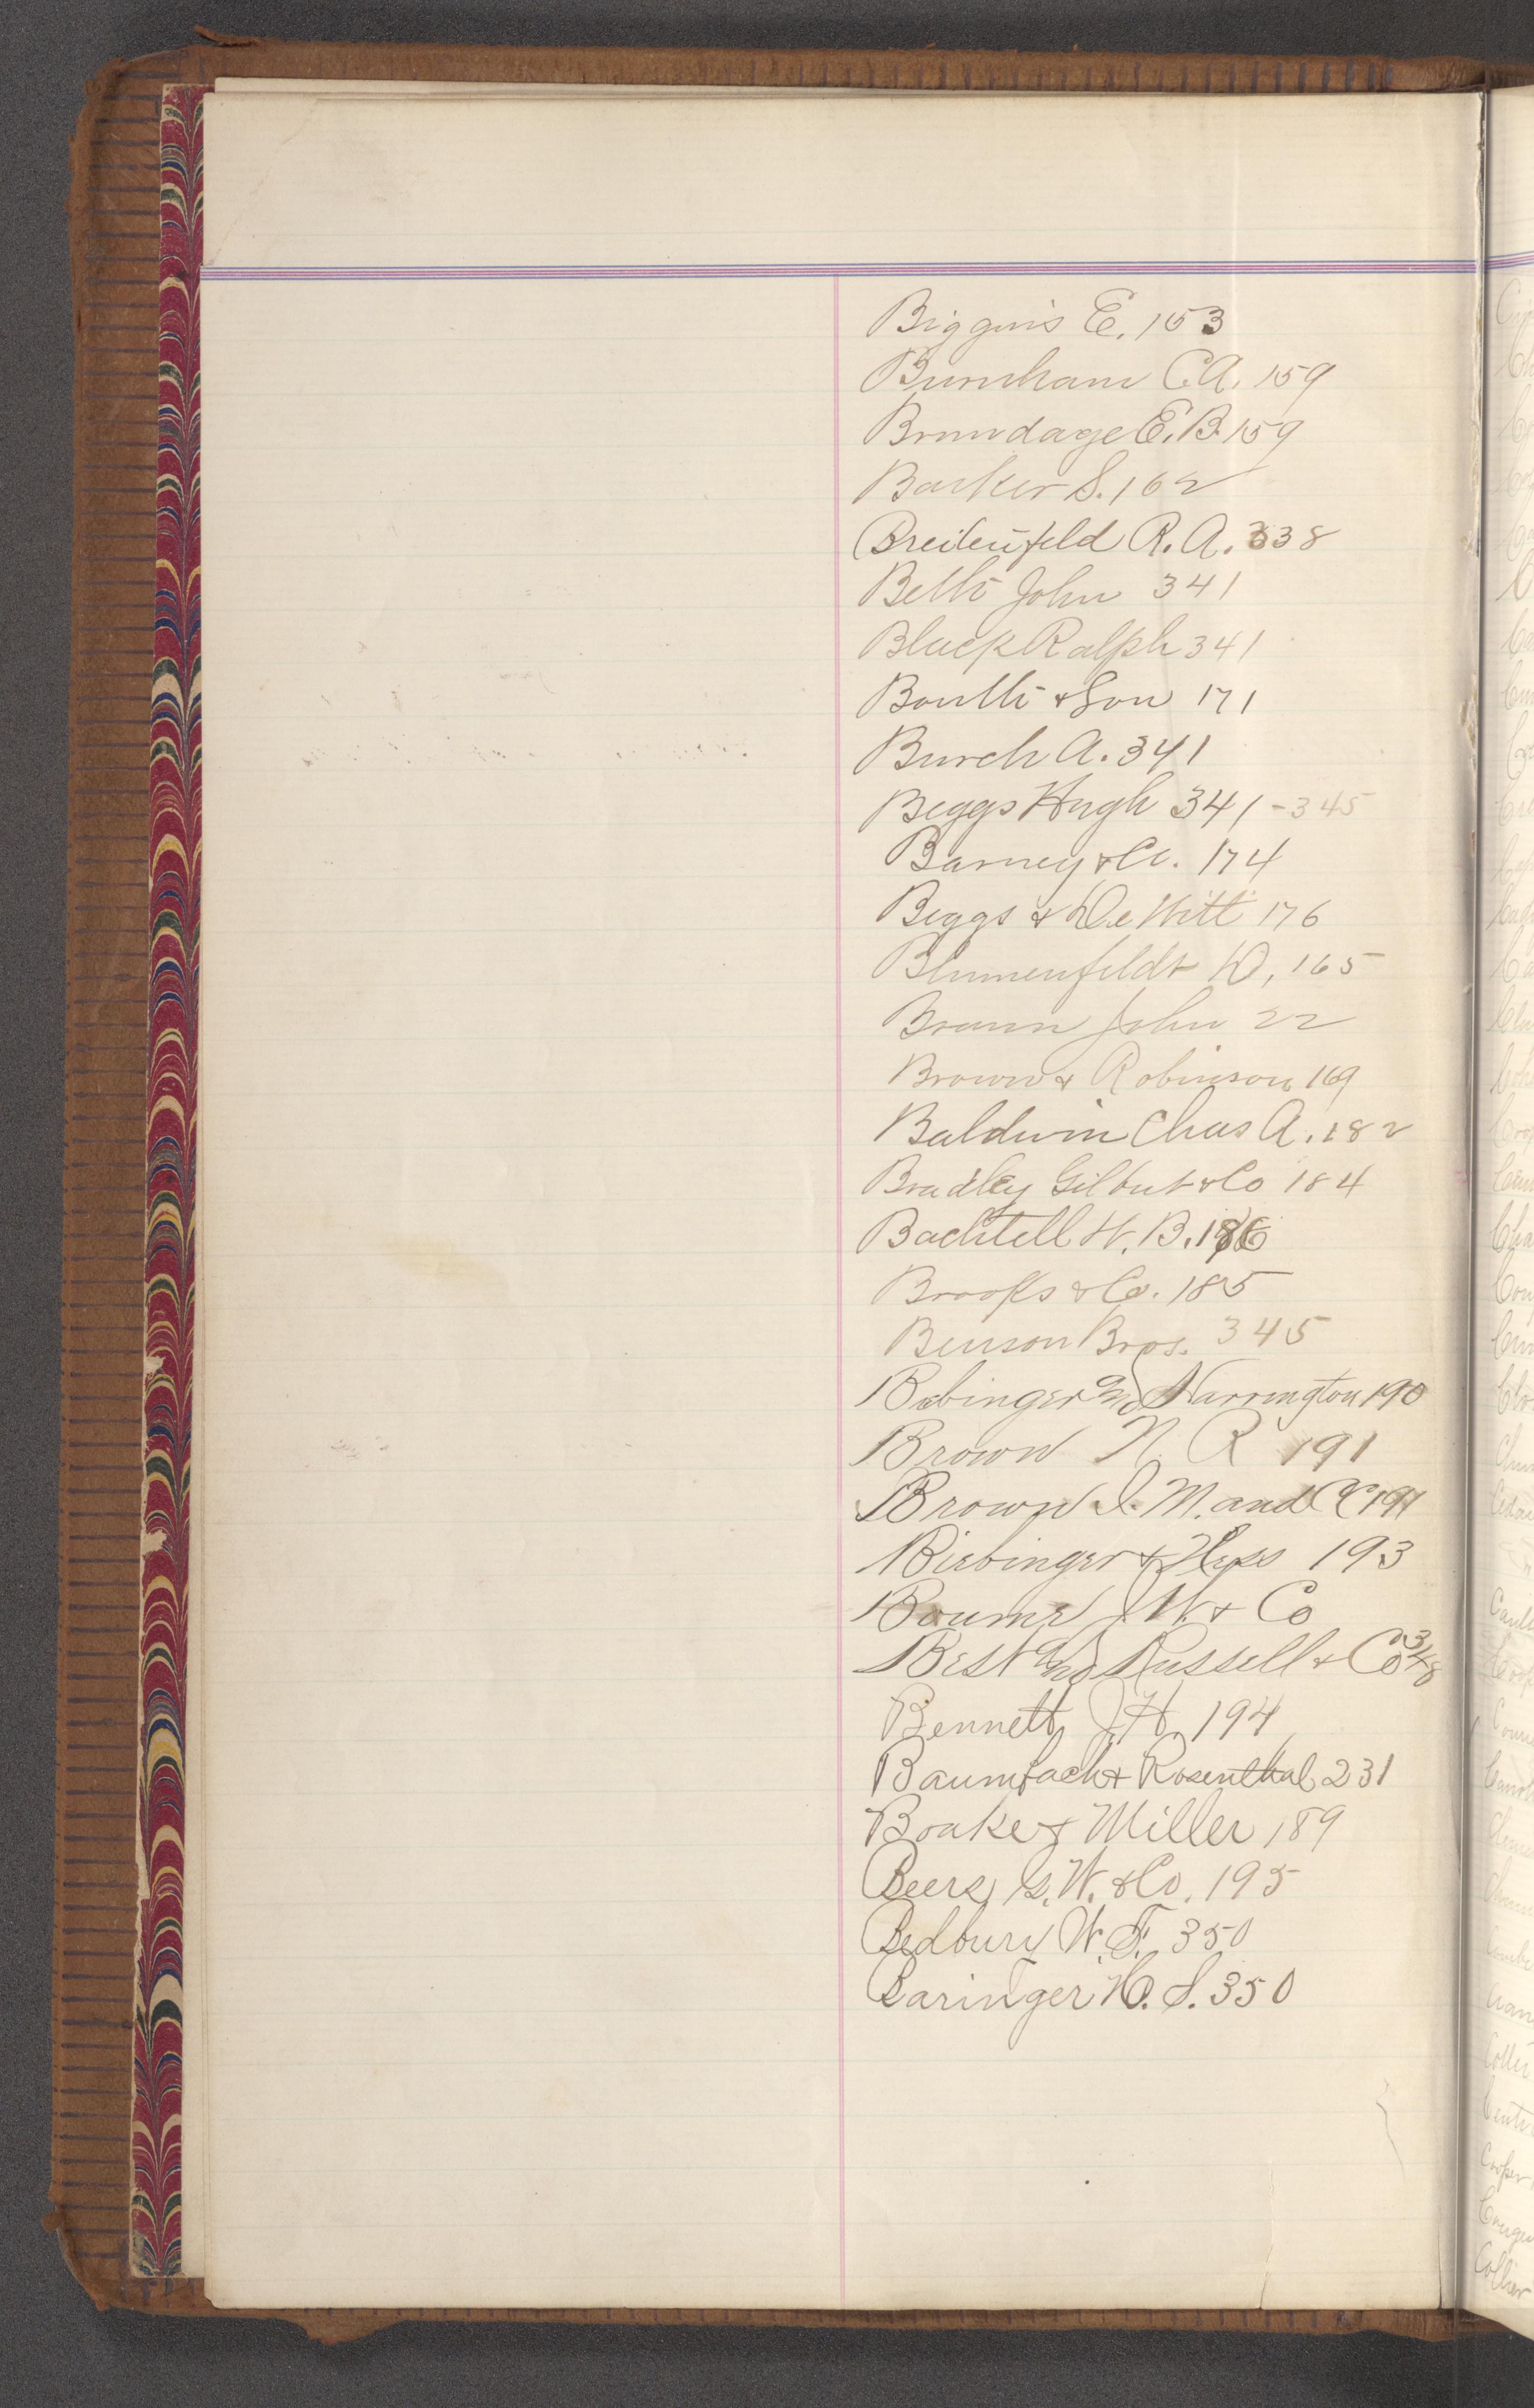 Biggins E. 153
Burnham C.A. 159
Brundage E.B. 159
Barker S. 162
Breitenfeld R. A. 338
Betts John 341
Black Ralph 341
Boutts & Son 171
Burch A. 341
Beggs Hugh 341-345
Barney & Co. 174
Beggs & DeWitt 176
Blumenfeldt D, 165
Braun John 22
Brown & Robinson 169
Baldwin Chas A. 182
Bradley Gilbert & Co 184
Bachtell W. B. 186
Brooks & Co. 185
Benson Bros. 345
Bebinger and Harrington 190
Brown N. R 191
Brown I. M. and Co 191
Biebinger & Hess 193
Bourne J. W. & Co
Best and Russell & Co 348
Bennett J. H. 194
Baumbach & Rosenthal 231
Boake & Miller 189
Beers, G. W. & Co. 195
Bedbury W. F. 350
Baringer D. S. 350